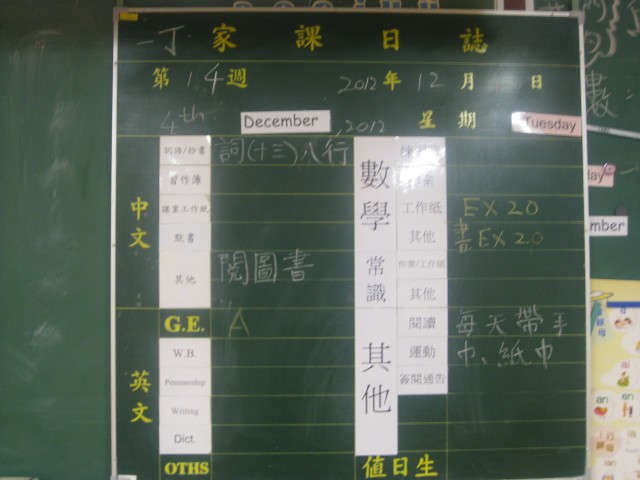 一丁 家課日誌
第14週 2012年12月 日
4th December, 2012 星期 Tuesday
中文
詞語/抄書 詞(十三)八行
習作簿
課室工作紙
默書
其他 閱圖書
英文
G.E. A
W.B.
Penmanship
Writing
Dict.
OTHS
數學
工作紙 EX 20
其他 書EX 2.0
常識
作業/工作紙
其他
其他
閱讀 每天帶手
運動 巾、紙巾
簽閱通告
值日生
mber
an